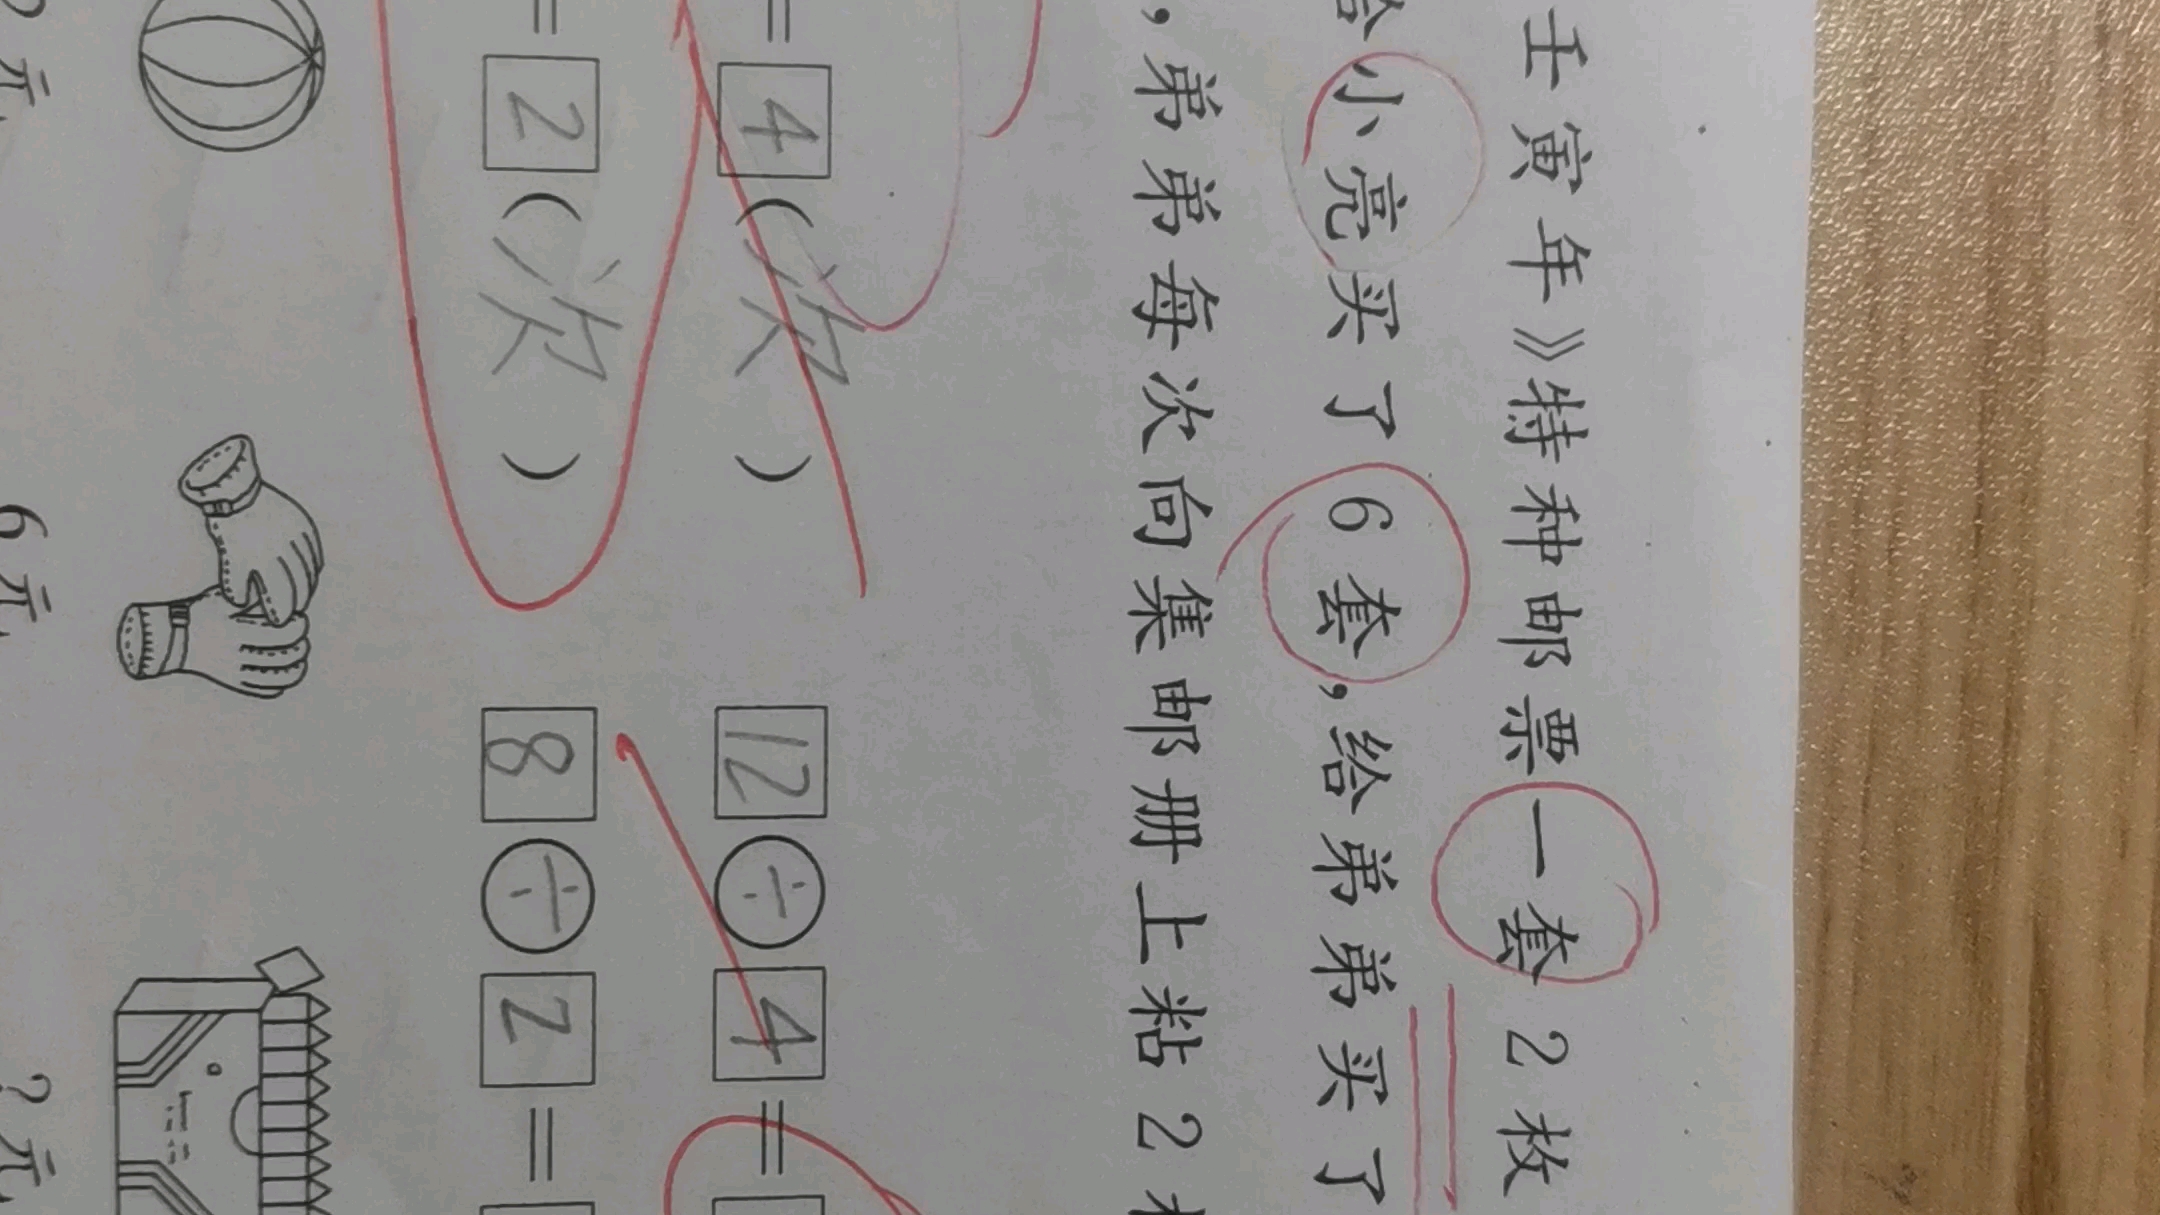 壬寅年》特种邮票一套2枚
给小亮买了6套,给弟弟买了
,弟弟每次向集邮册上粘2枚
=4(次) 12÷4=
=2(次) 8÷2=
2元 6元 ?元